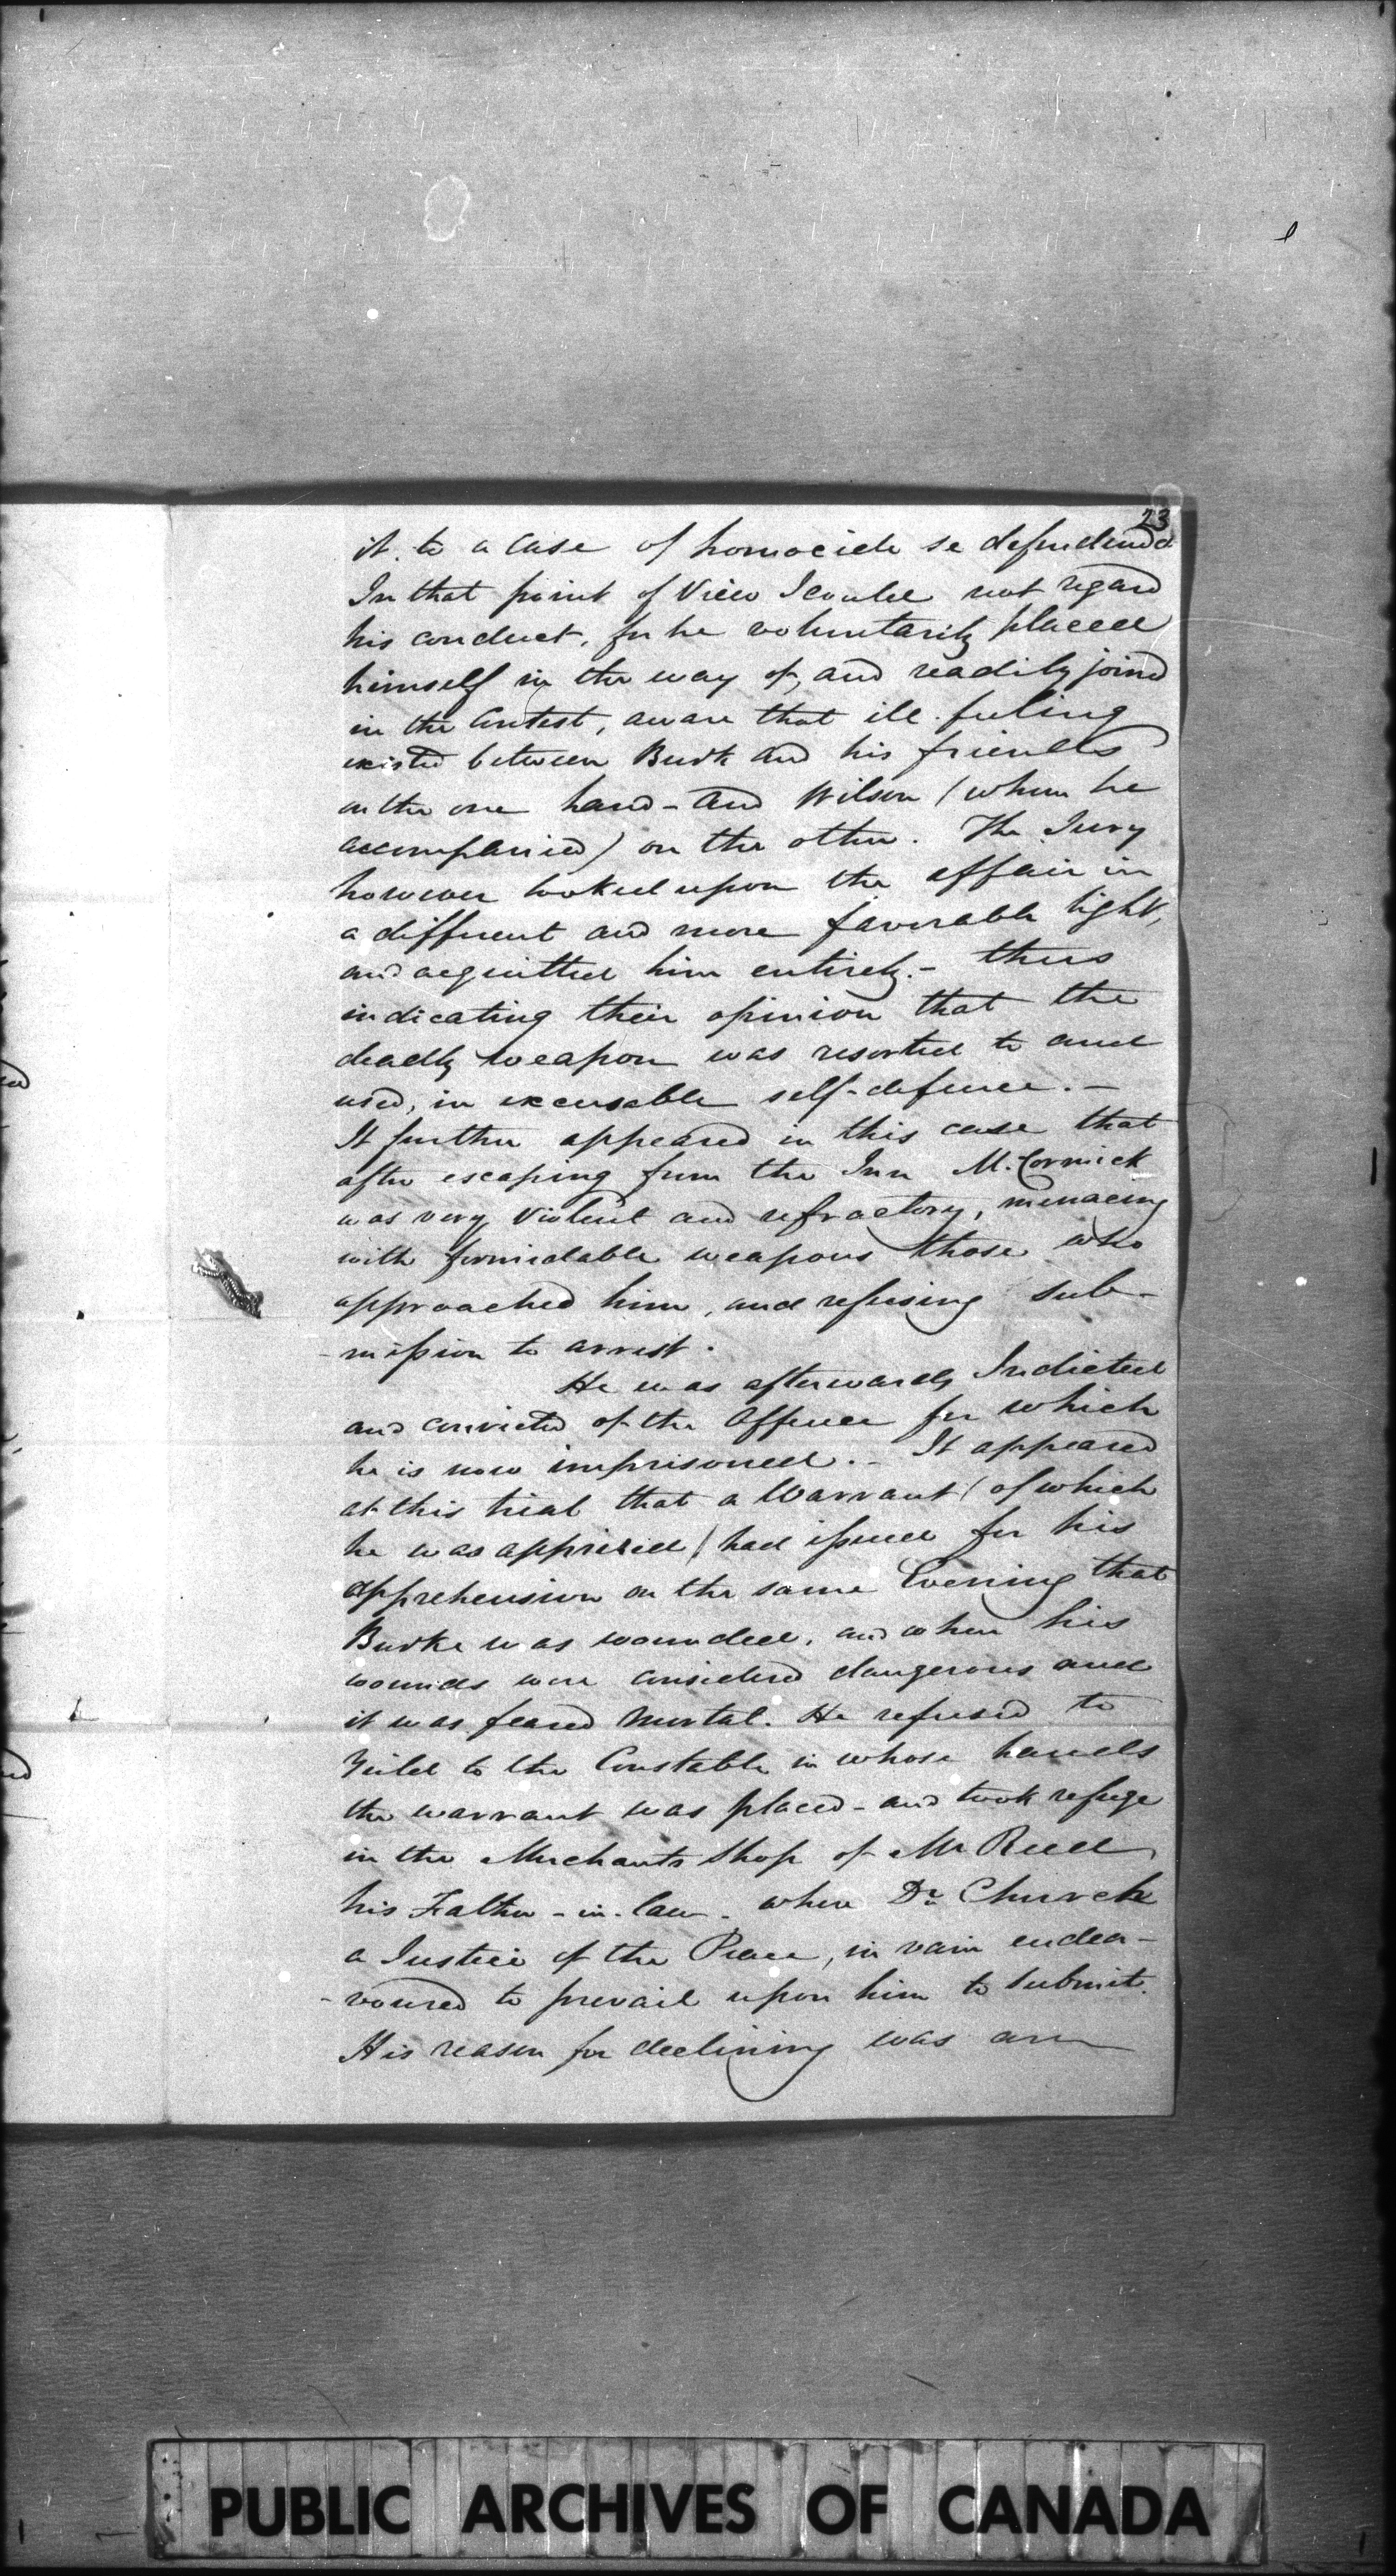 23
it to a case of homocide se defendendo
In that point of View I could not regard
his conduct, for he voluntarily placed
himself in the way of, and readily joined
in the Contest, aware that ill feeling
existed between Burk and his friends
on the one hand - and Wilson (whom he
accompanied) on the other. The Jury
however looked upon the affair in
a different and more favorable light,
and acquitted him entirely. - thus
indicating their opinion that the
deadly weapon was resorted to and
used, in excusable self-defence. -
It further appeared in this case that
after escaping from the Inn McCormick
was very violent and refractory, menacing
with formidable weapons those who
approached him, and refusing sub-
-mission to arrest.
He was afterwards Indicted
and convicted of the Offence for which
he is now imprisoned. - It appeared
at this trial that a Warrant (of which
he was apprised) had issued for his
apprehension on the same Evening that
Burke was wounded, and when his
wounds were considered dangerous and
it was feared Mortal. He refused to
Yield to the Constable in whose hands
the warrant was placed - and took refuge
in the Merchants Shop of Mr Reed
his Father-in-law - where Dr Church
a Justice of the Peace, in vain endea-
-voured to prevail upon him to submit.
His reason for declining was an
PUBLIC ARCHIVES OF CANADA